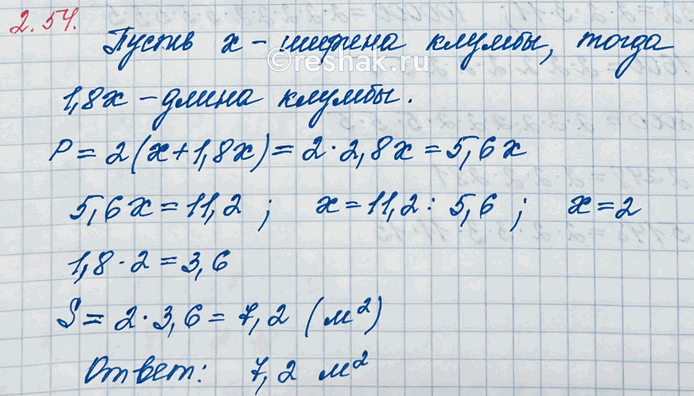 2.54.
Пусть x – ширина клумбы, тогда
reshak.ru
1,8x – длина клумбы.
P = 2(x+1,8x) = 2·2,8x = 5,6x
5,6x = 11,2 ; x = 11,2 : 5,6 ; x = 2
1,8·2 = 3,6
S = 2·3,6 = 7,2 (м²)
Ответ: 7,2 м²